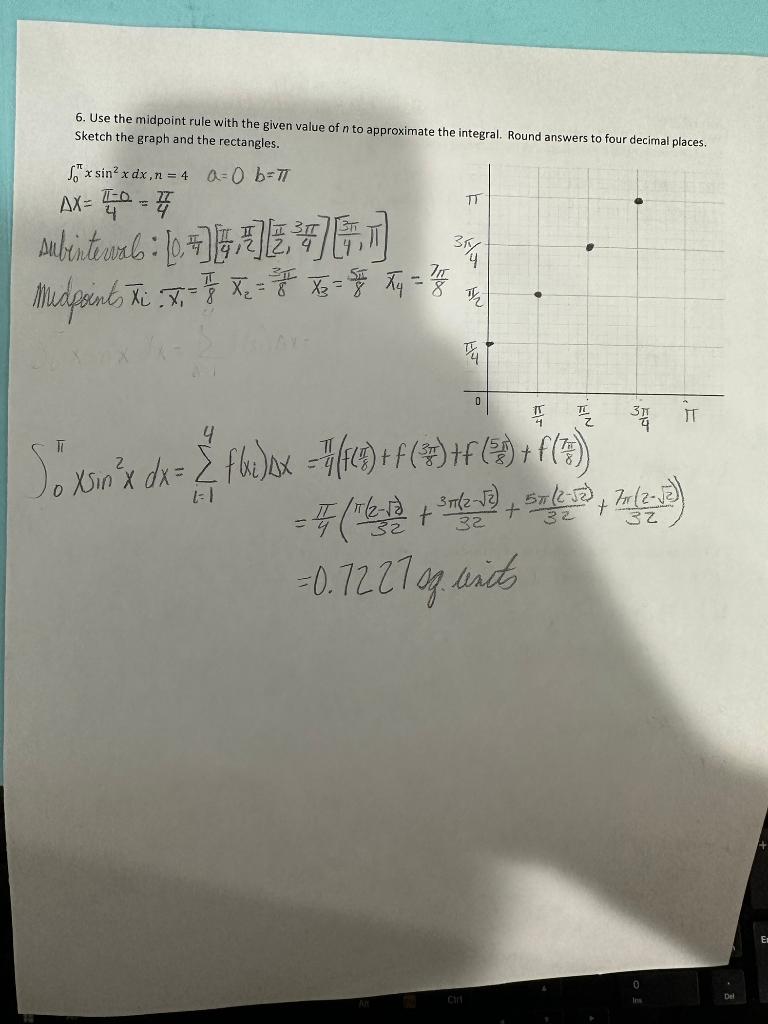 6. Use the midpoint rule with the given value of n to approximate the integral. Round answers to four decimal places.
Sketch the graph and the rectangles.
∫₀^π x sin² x dx, n = 4 a=0 b=π
Δx = (π-0)/4 = π/4
subintervals: [0, π/4] [π/4, π/2] [π/2, 3π/4] [3π/4, π]
Midpoints x̄i: x̄₁ = π/8 x̄₂ = 3π/8 x̄₃ = 5π/8 x̄₄ = 7π/8
π
3π/4
π/2
π/4
0
π/4 π/2 3π/4 π
∫₀^π xsin²x dx = Σ_{i=1}^{4} f(xi)Δx = π/4(f(π/8) + f(3π/8) + f(5π/8) + f(7π/8))
= π/4 (π(2-√2)/32 + 3π(2-√2)/32 + 5π(2-√2)/32 + 7π(2-√2)/32)
=0.7227 sq. units
Alt Ctrl
0
Ins
.
Del
+